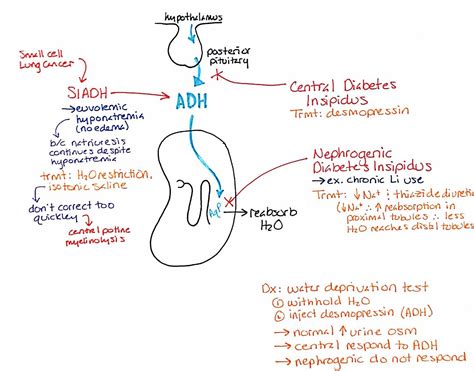 hypothalamus
posterior
pituitary
ADH
Small cell
Lung cancer
SIADH
→ euvolemic
hyponatremia
(no edema)
b/c natriuresis
continues despite
hyponatremia
trmt: H2O restriction,
isotonic saline
don't correct too
quickley
→ central potine
myelinolysis
Central Diabetes
Insipidus
Trmt: desmopressin
Nephrogenic
Diabetes Insipidus
→ ex. chronic Li use
Trmt: ↓Na+ : thiazide diuretic
(↓Na+ ∴ ↑ reabsorption in
proximal tubules ∴ less
H2O reaches distal tubules)
→ reabsorb
H2O
Dx: water deprivation test
① withhold H2O
② inject desmopressin (ADH)
→ normal ↑ urine osm
→ central respond to ADH
→ nephrogenic do not respond